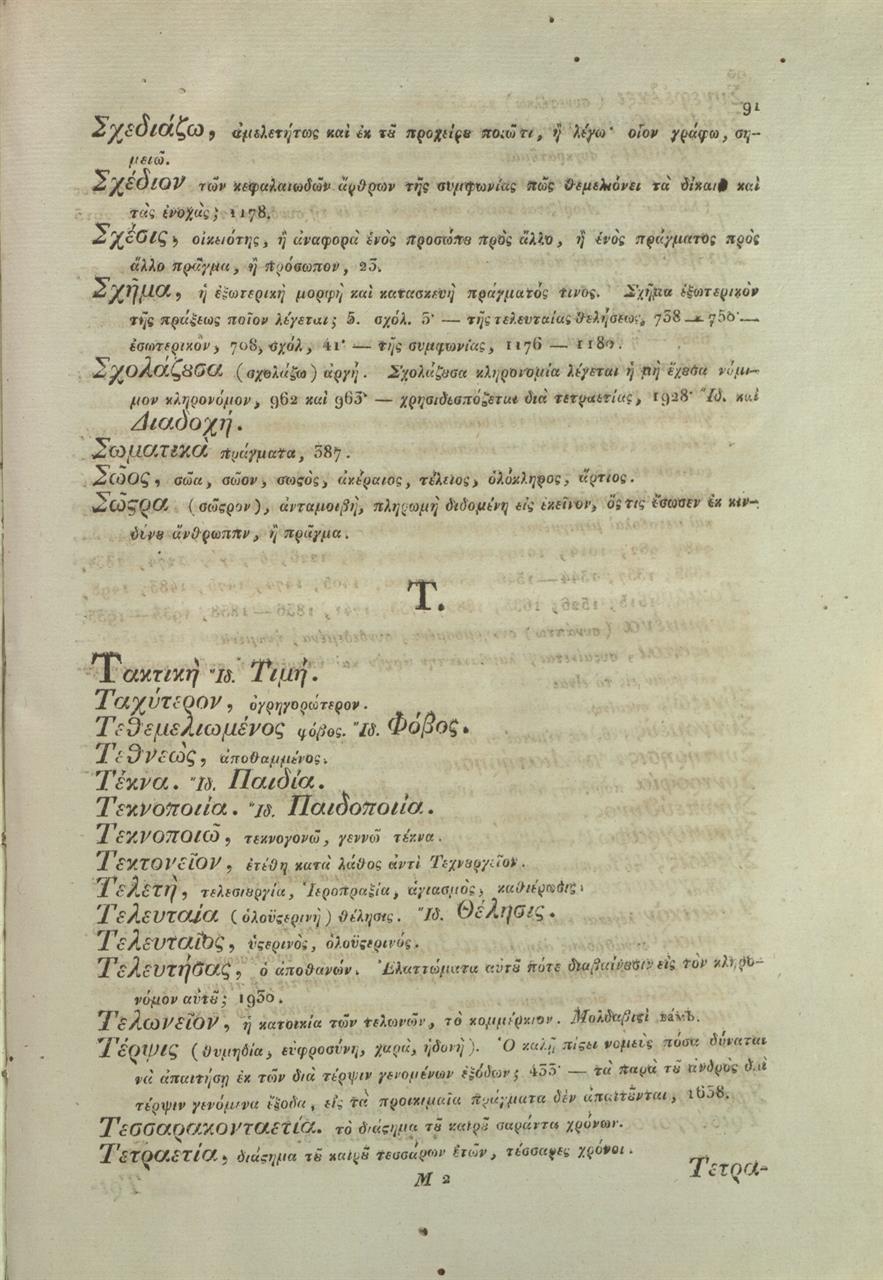 91
Σχεδιάζω, ἀμελετήτως καὶ ἐκ τȣ͂ προχείρȣ ποιῶ τι, ἢ λέγω· οἷον γράφω, ση-
μειῶ.
Σχέδιον τῶν κεφαλαιωδῶν ἄρθρων τῆς συμφωνίας πῶς θεμελιόνει τὰ δίκαια καὶ
τὰς ἐνοχάς; 1178.
Σχέσις, οἰκειότης, ἢ ἀναφορὰ ἑνὸς προσώπȣ πρὸς ἄλλο, ἢ ἑνὸς πράγματος πρὸς
ἄλλο πρᾶγμα, ἢ πρόσωπον, 23.
Σχῆμα, ἡ ἐξωτερικὴ μορφὴ καὶ κατασκευὴ πράγματός τινος. Σχῆμα ἐξωτερικὸν
τῆς πράξεως ποῖον λέγεται; 5. σχόλ. 3· — τῆς τελευταίας θελήσεως, 738 — 750· —
ἐσωτερικὸν, 708, σχόλ, 41· — τῆς συμφωνίας, 1176 — 1180.
Σχολάζȣσα (σχολάζω) ἀργή. Σχολάζȣσα κληρονομία λέγεται ἡ μὴ ἔχȣσα νόμι-
μον κληρονόμον, 962 καὶ 963· — χρησιδεσπόζεται διὰ τετραετίας, 1928· Ἴδ. καὶ
Διαδοχή.
Σωματικὰ πράγματα, 387.
Σῶος, σῶα, σῶον, σωϛὸς, ἀκέραιος, τέλειος, ὁλόκληρος, ἄρτιος.
Σῶϛρα (σῶϛρον), ἀνταμοιβὴ, πληρωμὴ διδομένη εἰς ἐκεῖνον, ὅϛις ἔσωσεν ἐκ κιν-
δύνȣ ἄνθρωππν, ἢ πρᾶγμα.
Τ.
Τακτικὴ Ἴδ. Τιμή.
Ταχύτερον, ὀγρηγορώτερον.
Τεθεμελιωμένος φόβος. Ἴδ. Φόβος.
Τεθνεὼς, ἀποθαμμένος.
Τέκνα. Ἴδ. Παιδία.
Τεκνοποιία. Ἴδ. Παιδοποιία.
Τεκνοποιῶ, τεκνογονῶ, γεννῶ τέκνα.
Τεκτονεῖον, ἐτέθη κατὰ λάθος ἀντὶ Τεχνȣργεῖον.
Τελετὴ, τελεσιȣργία, Ἱεροπραξία, ἁγιασμὸς, καθιέρωσις.
Τελευταία (ὁλοΰϛερινὴ) θέλησις. Ἴδ. Θέλησις.
Τελευταῖος, ὑϛερινὸς, ὁλοΰϛερινός.
Τελευτήσας, ὁ ἀποθανών. Ἐλαττώματα αὐτȣ͂ πότε διαβαίνȣσιν εἰς τὸν κληρο-
νόμον αὐτȣ͂; 1930.
Τελωνεῖον, ἡ κατοικία τῶν τελωνῶν, τὸ κομμέρκιον. Μολδαβιϛὶ
Τέρψις (θυμηδία, εὐφροσύνη, χαρὰ, ἡδονή). Ὁ καλῇ πίϛει νομεὺς πόσα δύναται
νὰ ἀπαιτήσῃ ἐκ τῶν διὰ τέρψιν γενομένων ἐξόδων; 433· — τὰ παρὰ τȣ͂ ἀνδρὸς διὰ
τέρψιν γενόμενα ἔξοδα, εἰς τὰ προικιμαῖα πράγματα δὲν ἀπαιτȣ͂νται, 1658.
Τεσσαρακονταετία. τὸ διάϛημα τȣ͂ καιρȣ͂ σαράντα χρόνων.
Τετραετία, διάϛημα τȣ͂ καιρȣ͂ τεσσάρων ἐτῶν, τέσσαρες χρόνοι.
Μ 2
Τετρα-